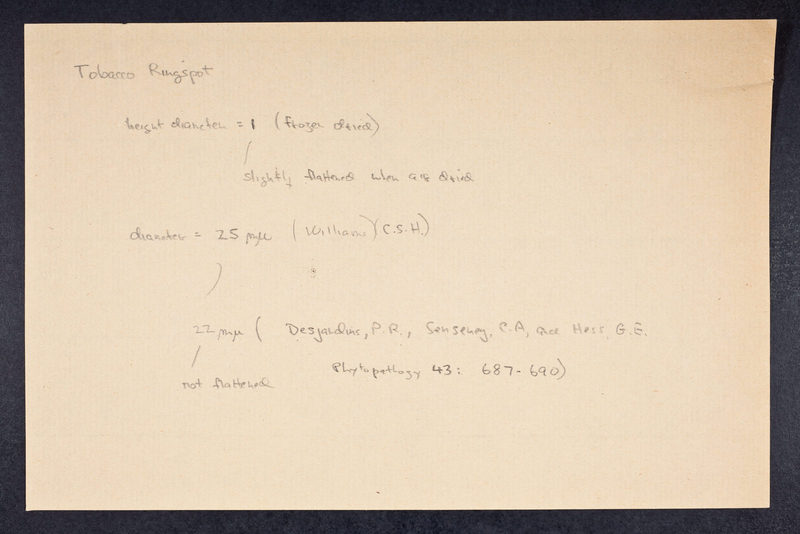 Tobacco Ringspot
height diameter = 1 (frozen dried)
slightly flattened when air dried
diameter = 25 mμ (Williams)(C.S.H.)
22 mμ ( Desjardins, P.R., Senseney, C.A, and Hess, G.E.
Phytopathogy 43: 687-690)
not flattened